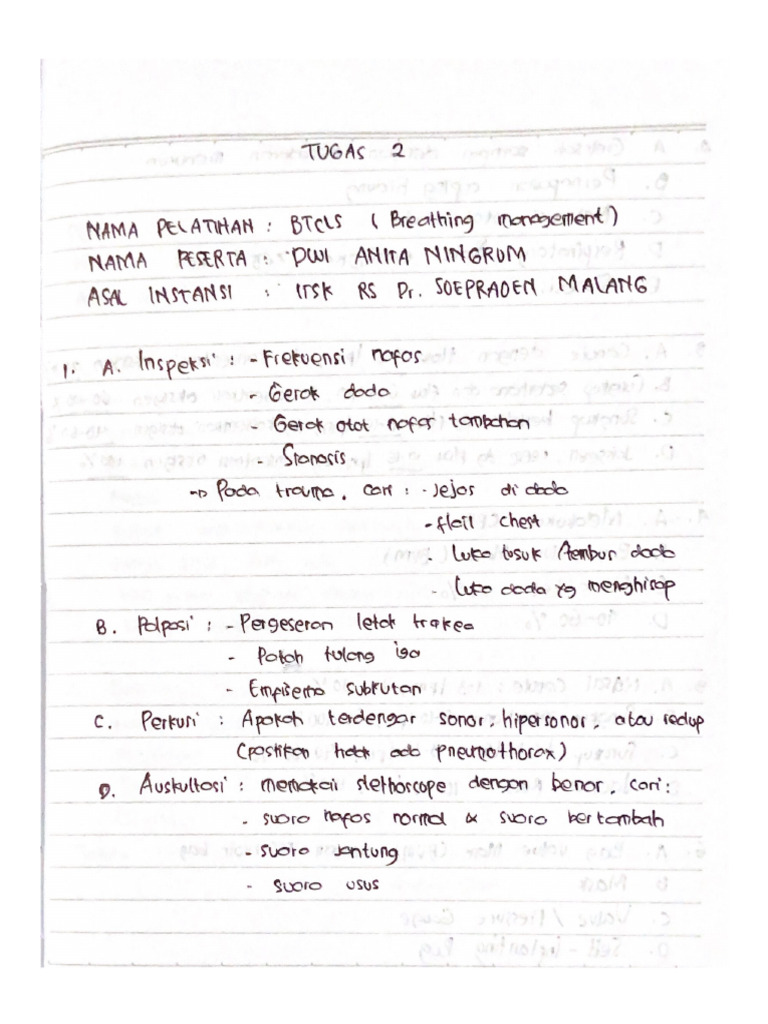 TUGAS 2
NAMA PELATIHAN : BTCLS ( Breathing management )
NAMA PESERTA : DWI ANITA NINGRUM
ASAL INSTANSI : ITSK RS Dr. SOEPRAOEN MALANG
1. A. Inspeksi : - Frekuensi nafas
- Gerak dada
- Gerak otot nafas tambahan
- Sianosis
-> Pada trauma, cari : - Jejas di dada
- flail chest
- Luka tusuk /tembus dada
- Luka dada yg menghisap
B. Palpasi : - Pergeseran letak trakea
- Patah tulang iga
- Empisema subkutan
C. Perkusi : Apakah terdengar sonor, hipersonor, atau redup
(pastikan tidak ada pneumothorax)
D. Auskultasi : memakai stethoscope dengan benar, cari :
- suara nafas normal & suara bertambah
- suara jantung
- suara usus